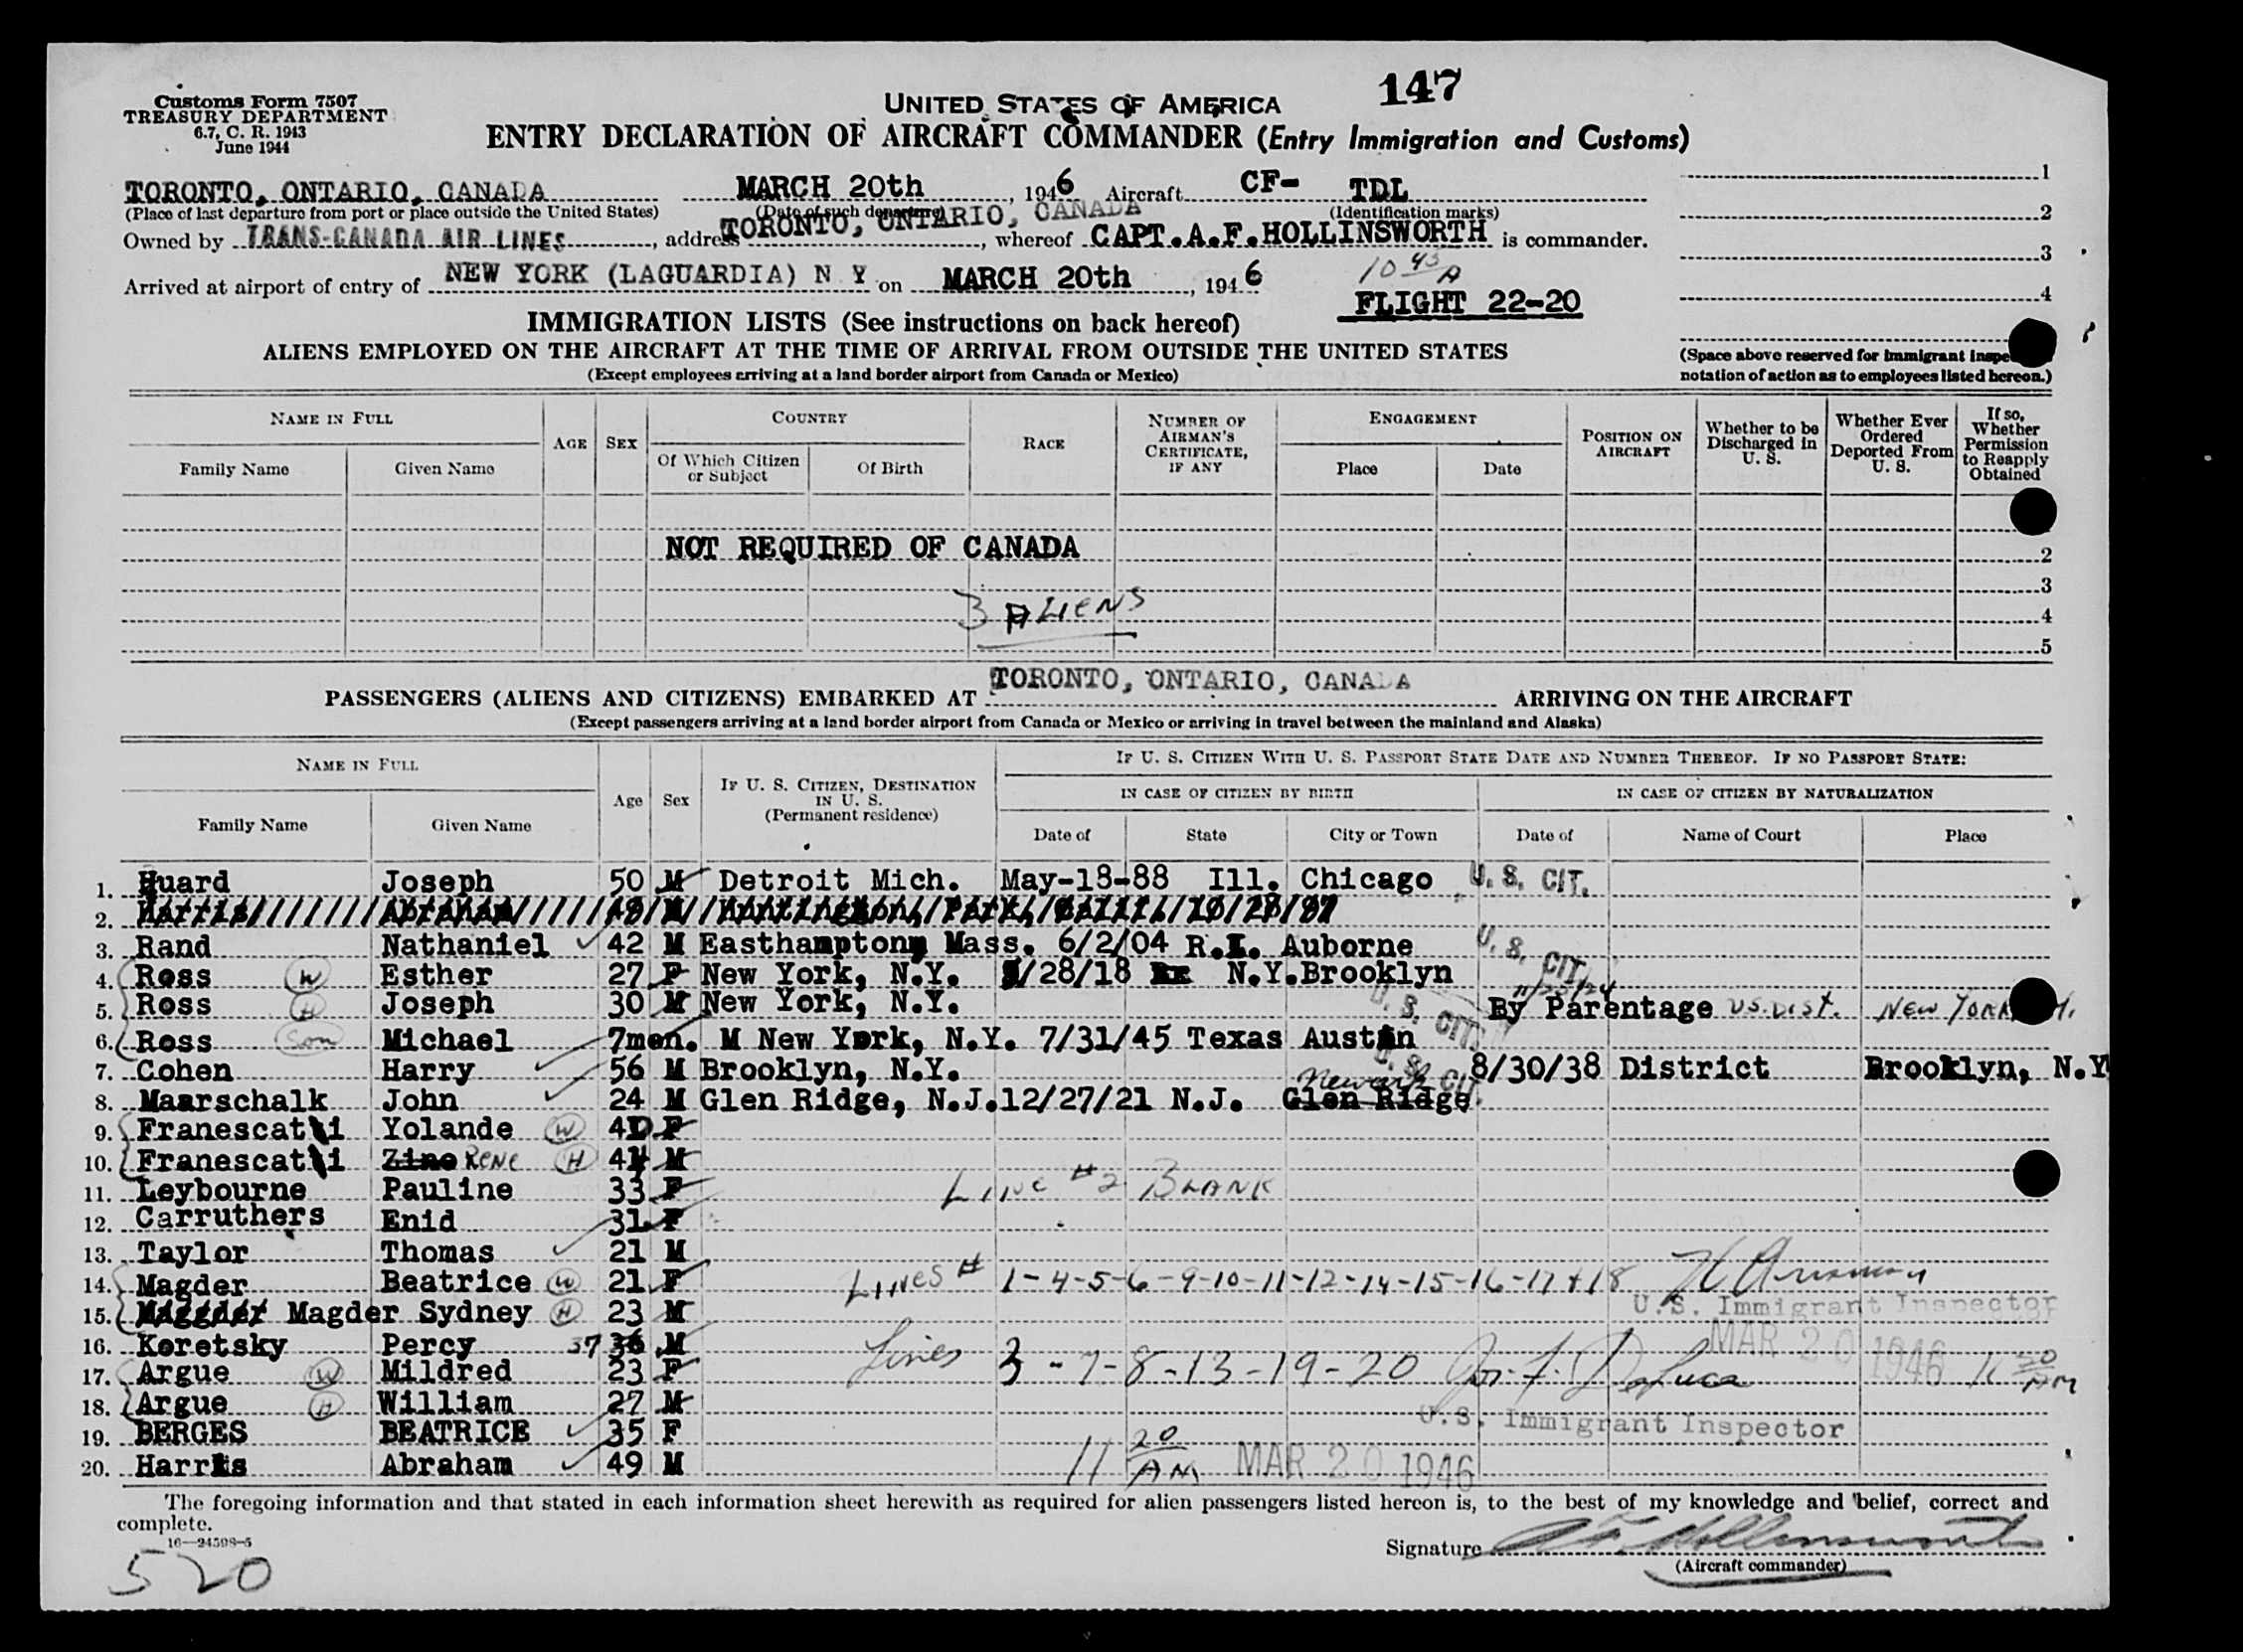 147
Customs Form 7507
TREASURY DEPARTMENT
6.7, C. R. 1943
June 1944
UNITED STATES OF AMERICA
ENTRY DECLARATION OF AIRCRAFT COMMANDER (Entry Immigration and Customs)
TORONTO, ONTARIO, CANADA MARCH 20th, 1946 Aircraft CF- TDL
(Place of last departure from port or place outside the United States) (Date of such departure) (Identification marks)
Owned by TRANS-CANADA AIR LINES, address TORONTO, ONTARIO, CANADA, whereof CAPT.A.F.HOLLINSWORTH is commander.
Arrived at airport of entry of NEW YORK (LAGUARDIA) N Y on MARCH 20th, 1946 10 45 A
FLIGHT 22-20
1
2
3
4
(Space above reserved for immigrant
notation of action as to employees listed hereon.)
IMMIGRATION LISTS (See instructions on back hereof)
ALIENS EMPLOYED ON THE AIRCRAFT AT THE TIME OF ARRIVAL FROM OUTSIDE THE UNITED STATES
(Except employees arriving at a land border airport from Canada or Mexico)
NAME IN FULL AGE SEX COUNTRY RACE NUMBER OF AIRMAN'S CERTIFICATE, IF ANY ENGAGEMENT POSITION ON AIRCRAFT Whether to be Discharged in U. S. Whether Ever Ordered Deported From U. S. If so, Whether Permission to Reapply Obtained
Family Name Given Name Of Which Citizen or Subject Of Birth Place Date
NOT REQUIRED OF CANADA 2
3
3 ALIENS 4
5
PASSENGERS (ALIENS AND CITIZENS) EMBARKED AT TORONTO, ONTARIO, CANADA ARRIVING ON THE AIRCRAFT
(Except passengers arriving at a land border airport from Canada or Mexico or arriving in travel between the mainland and Alaska)
NAME IN FULL Age Sex IF U. S. CITIZEN, DESTINATION IN U. S. (Permanent residence) IF U. S. CITIZEN WITH U. S. PASSPORT STATE DATE AND NUMBER THEREOF. IF NO PASSPORT STATE:
IN CASE OF CITIZEN BY BIRTH IN CASE OF CITIZEN BY NATURALIZATION
Family Name Given Name Date of State City or Town Date of Name of Court Place
1. Huard Joseph 50 M Detroit Mich. May-18-88 Ill. Chicago U. S. CIT.
2. Harris Abraham 49 M Huntington Park, Calif. 10/28/97
3. Rand Nathaniel 42 M Easthampton, Mass. 6/2/04 R.I. Auborne U. S. CIT.
4. Ross W Esther 27 F New York, N.Y. /28/18 N.Y. Brooklyn
5. Ross H Joseph 30 M New York, N.Y. U. S. CIT. By Parentage U.S. DIST. NEW YORK
6. Ross Son Michael 7mon. M New York, N.Y. 7/31/45 Texas Austin
7. Cohen Harry 56 M Brooklyn, N.Y. U. S. CIT. 8/30/38 District Brooklyn, N.Y
8. Maarschalk John 24 M Glen Ridge, N.J. 12/27/21 N.J. Newark Glen Ridge
9. Franescatti Yolande W 40 F
10. Franescatti Zino Rene H 44 M
11. Leybourne Pauline 33 F LINE #2 BLANK
12. Carruthers Enid 31 F
13. Taylor Thomas 21 M
14. Magder Beatrice W 21 F LINES # 1-4-5-6-9-10-11-12-14-15-16-17+18
15. Magder Magder Sydney H 23 M U.S. Immigrant Inspector
16. Koretsky Percy 37 36 M MAR 20 1946 11 20 AM
17. Argue W Mildred 23 F Lines 3-7-8-13-19-20 Jos. F. DeLuca
18. Argue H William 27 M U.S. Immigrant Inspector
19. BERGES BEATRICE 35 F
20. Harris Abraham 49 M 11 20 AM MAR 20 1946
The foregoing information and that stated in each information sheet herewith as required for alien passengers listed hereon is, to the best of my knowledge and belief, correct and
complete.
16—24598-5
520
Signature A F Hollinsworth
(Aircraft commander)